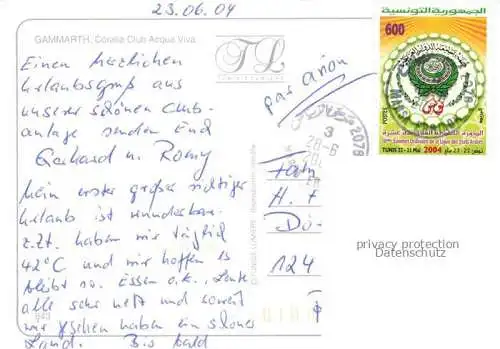 23.06.04
GAMMARTH, Coralia Club Acqua Viva
Einen herzlichen
Urlaubsgruß aus
unserer schönen Club-
anlage senden Euch
Gerhard u. Romy
Mein erster großer richtiger
Urlaub ist wunderbar
z.Zt. haben wir täglich
42°C und wir hoffen es
bleibt so. Essen o.k., Leute
alle sehr nett und soweit
wir gesehen haben ein schönes
Land. Bis bald
TL
par avion
الجمهورية التونسية
600
POSTES
TUNIS 22-23 Mai 2004
2078
3
28-6
Fam
H. F
Dö
124
privacy protection
Datenschutz